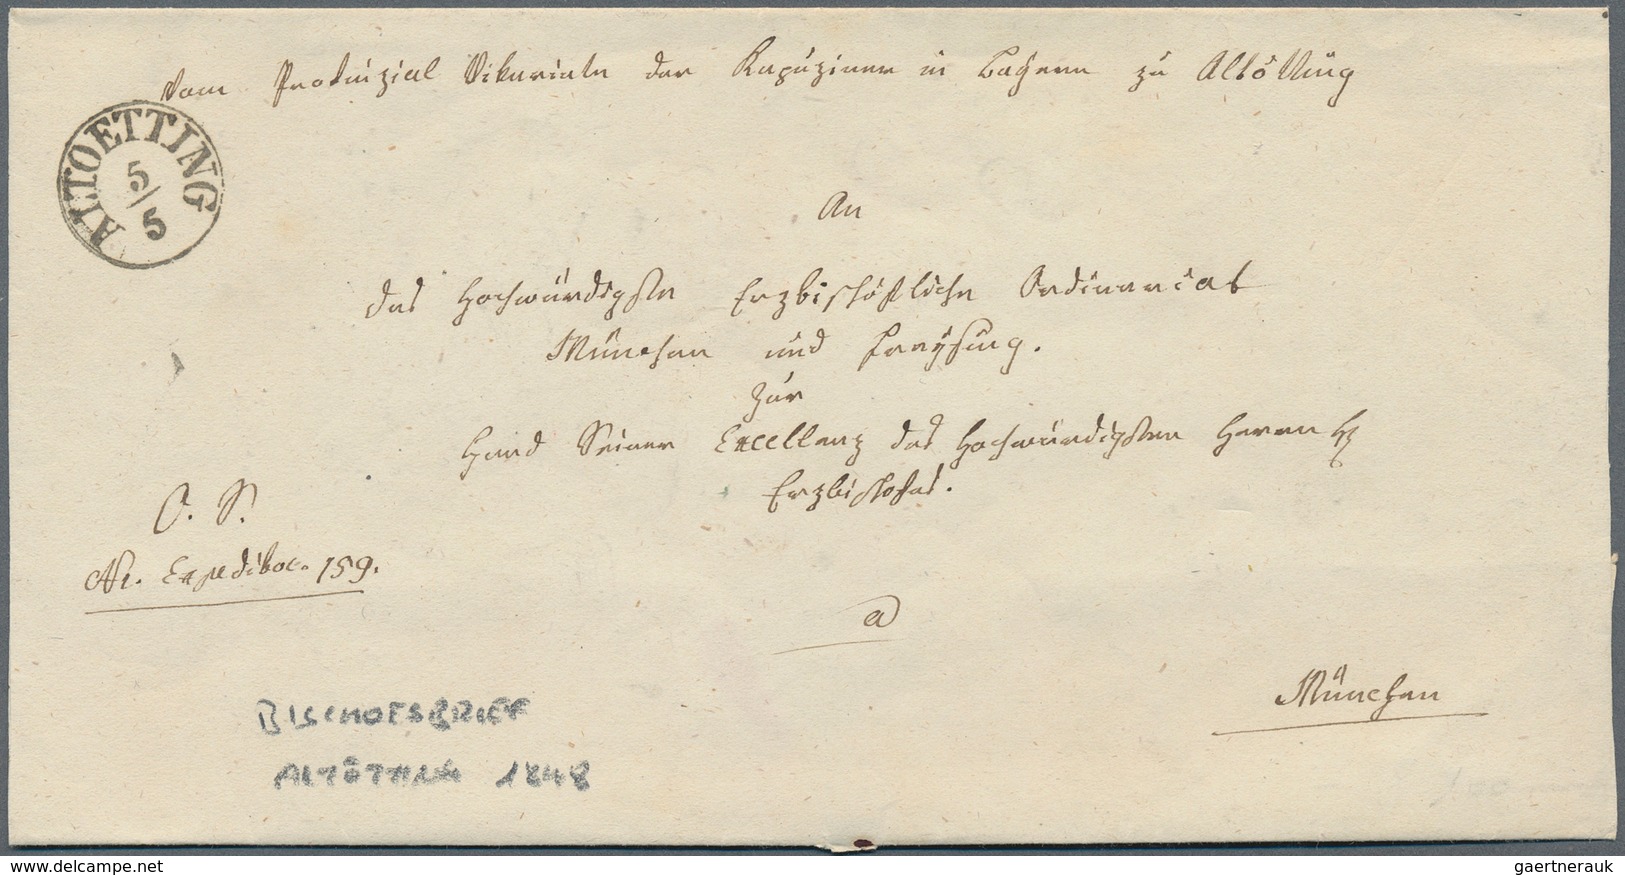 Vom Provinzial Vikariate der Kapuziner in Bayern zu Altötting
ALTOETTING
5/5
An
das Hochwürdigste Erzbischöfliche Ordinariat
München und Freysing.
Zur
Hand Seiner Excellenz des Hochwürdigsten Herrn H
Erzbischofes.
O. S.
Nr. Expeditor. 159.
a
München
BISCHOFSBRIEF
ALTÖTTING 1848
www.delcampe.net
gaertnerauk